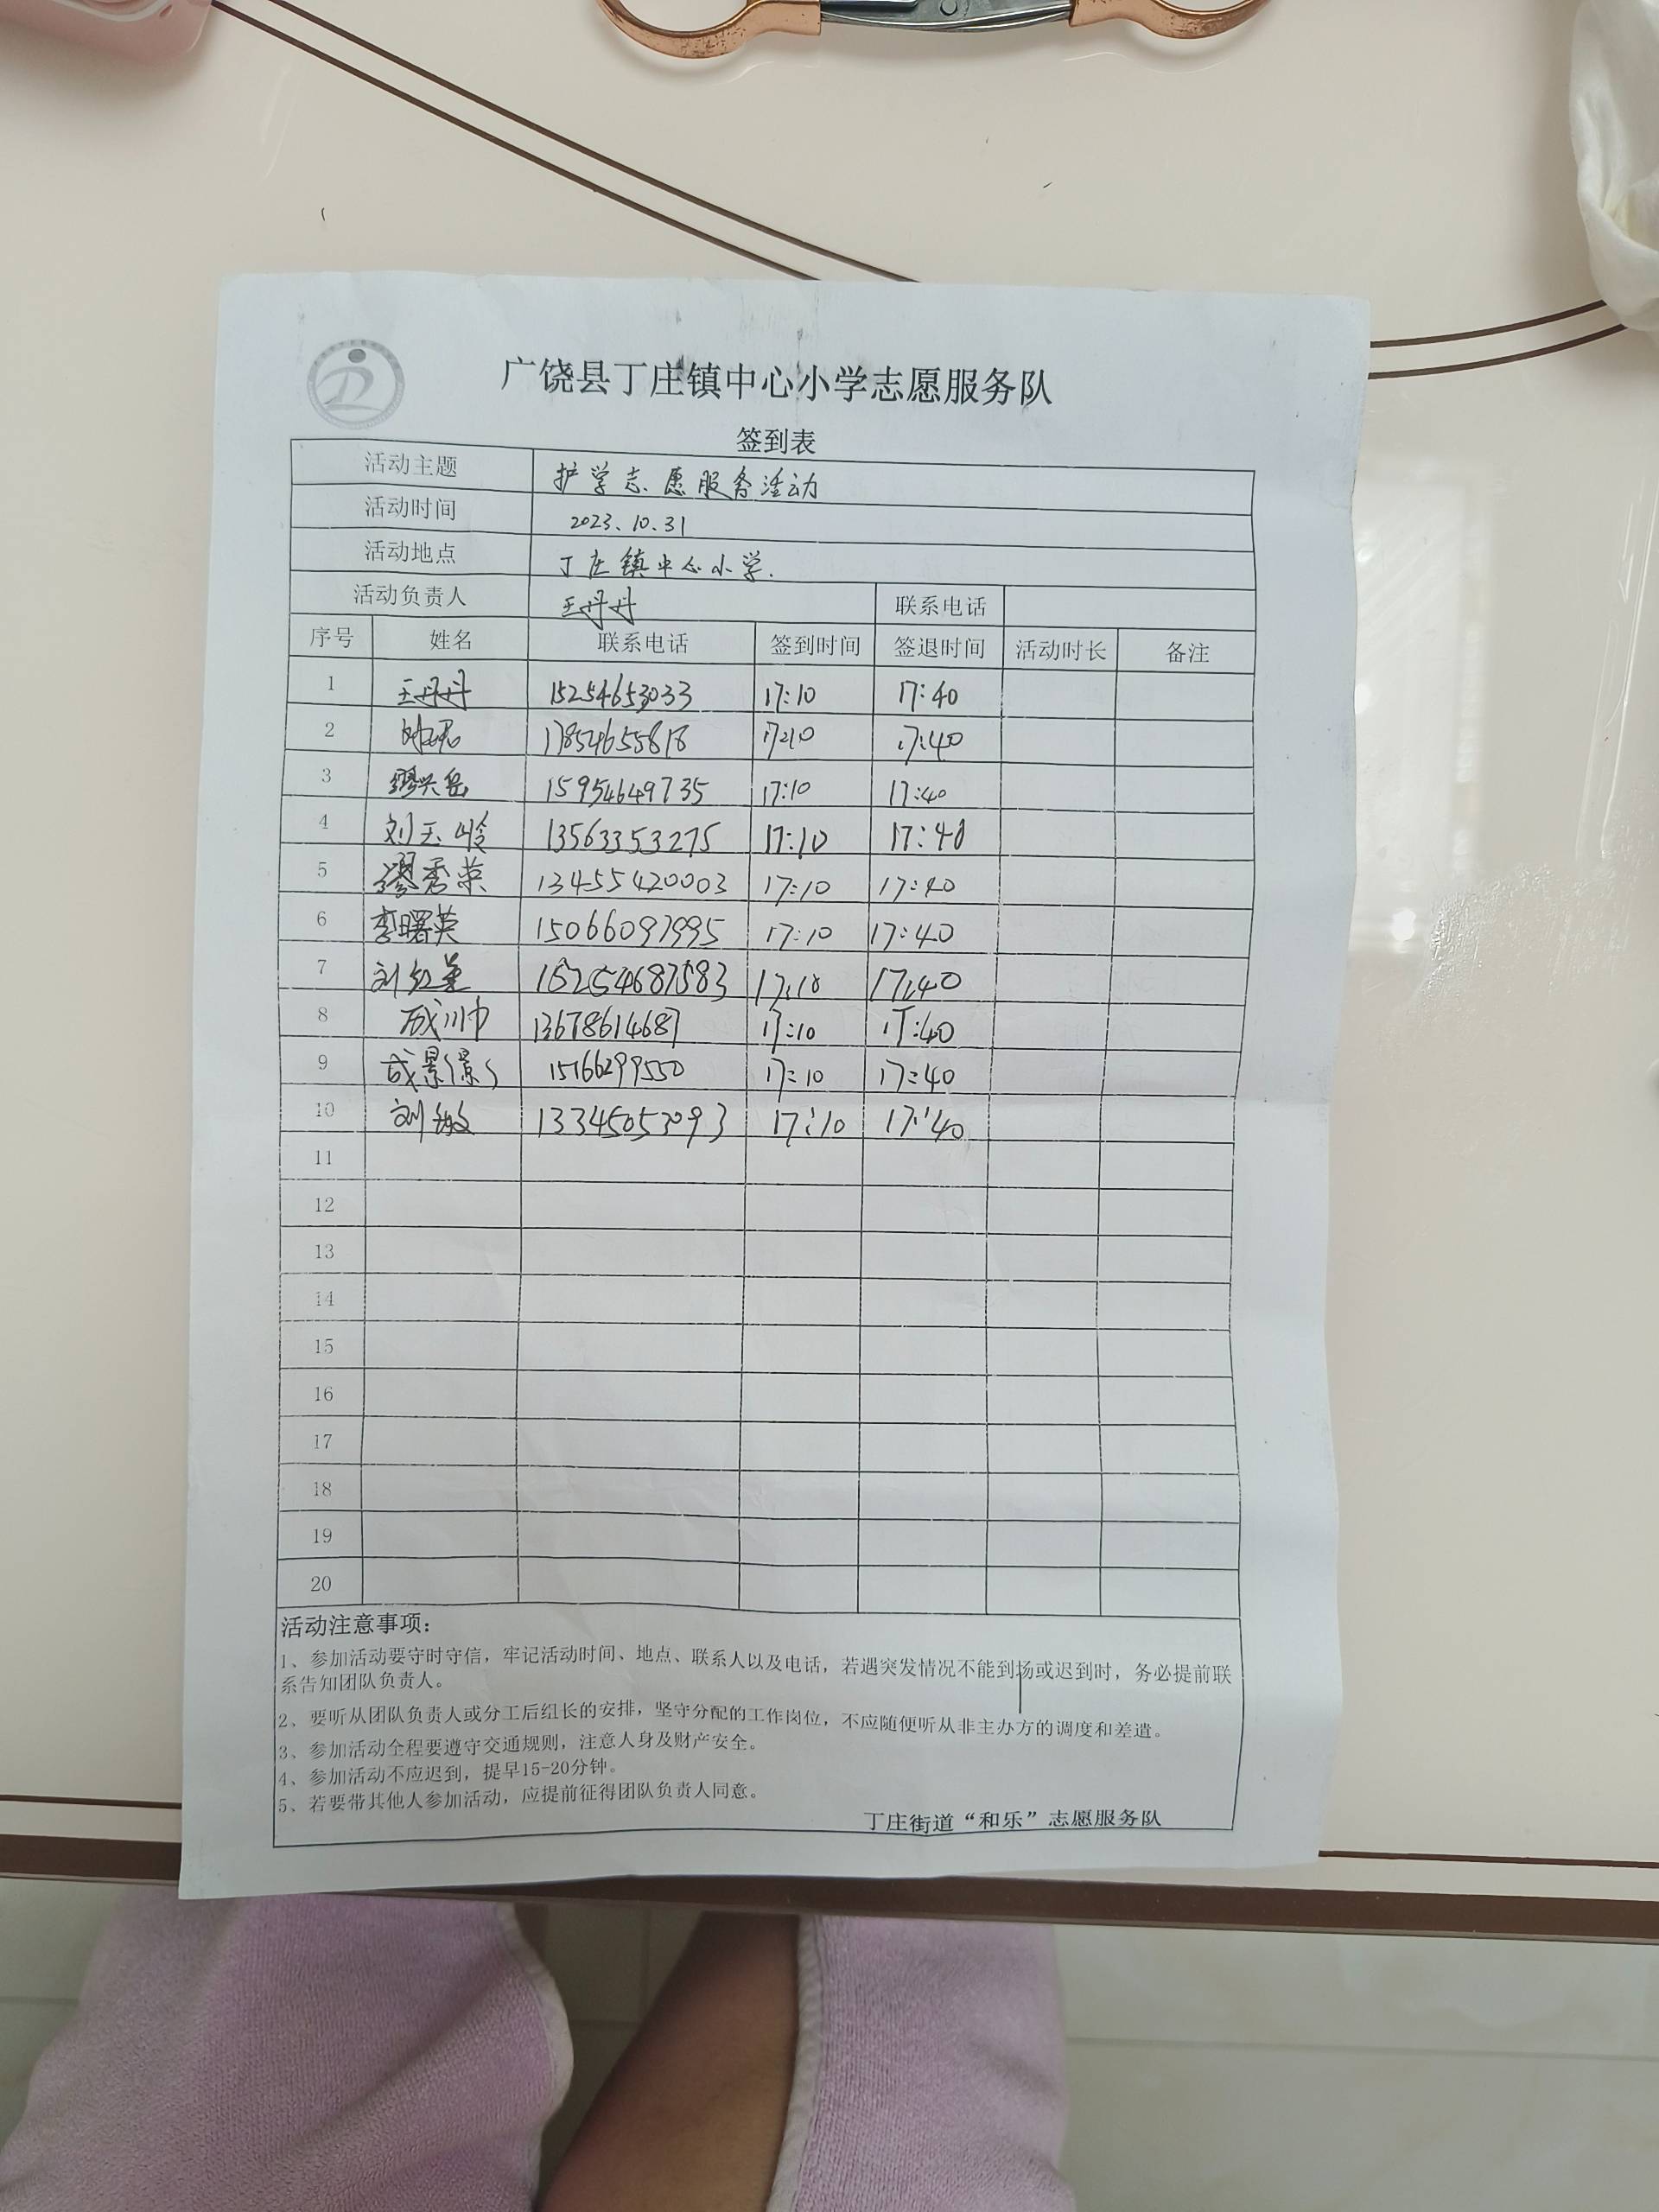 广饶县丁庄镇中心小学志愿服务队
签到表
活动主题 护学志愿服务活动
活动时间 2023.10.31
活动地点 丁庄镇中心小学.
活动负责人 王丹丹 联系电话
序号 姓名 联系电话 签到时间 签退时间 活动时长 备注
1 王丹丹 15254653033 17:10 17:40
2 17854655818 17:10 17:40
3 缪兴岳 15954649735 17:10 17:40
4 刘玉岭 13563353275 17:10 17:40
5 缪秀荣 13455420003 17:10 17:40
6 李曙英 15066097995 17:10 17:40
7 刘红星 15254687583 17:10 17:40
8 成川巾 13678614687 17:10 17:40
9 成景 15166299550 17:10 17:40
10 刘敏 13345053093 17:10 17:40
11
12
13
14
15
16
17
18
19
20
活动注意事项：
1、参加活动要守时守信，牢记活动时间、地点、联系人以及电话，若遇突发情况不能到场或迟到时，务必提前联
系告知团队负责人。
2、要听从团队负责人或分工后组长的安排，坚守分配的工作岗位，不应随便听从非主办方的调度和差遣。
3、参加活动全程要遵守交通规则，注意人身及财产安全。
4、参加活动不应迟到，提早15-20分钟。
5、若要带其他人参加活动，应提前征得团队负责人同意。
丁庄街道“和乐”志愿服务队